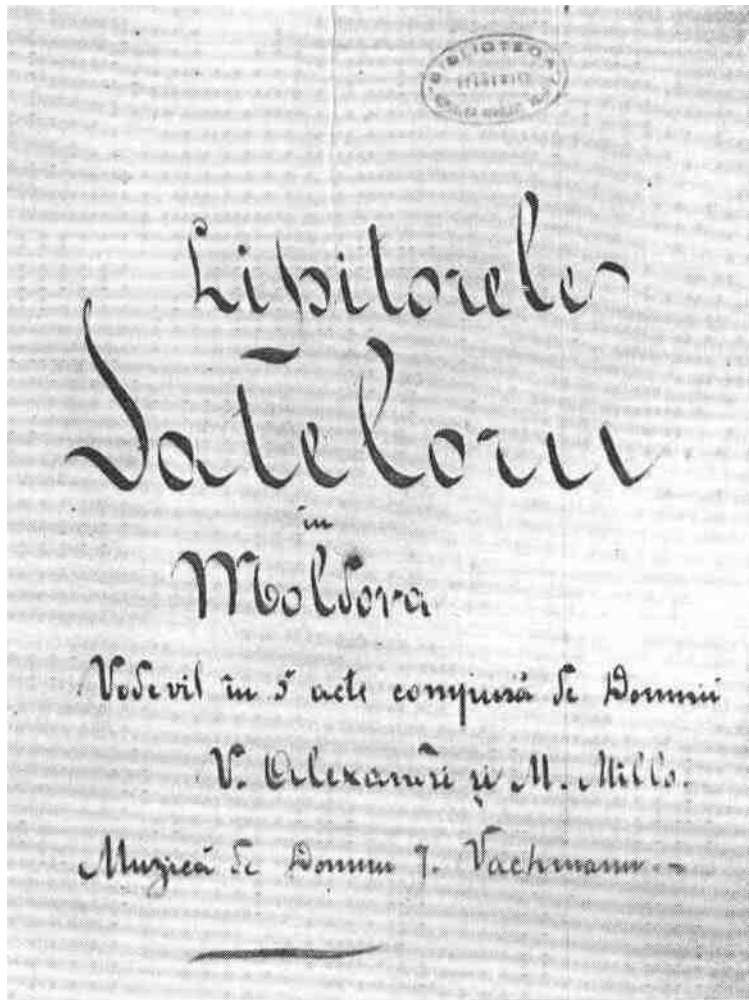 BIBLIOTECA
Lipitorele
Satēloru
în
Moldova
Vodevil în 5 acte compusă de Domnii
V. Alexandri și M. Millo.
Muzică de Domnu J. Vachmann.